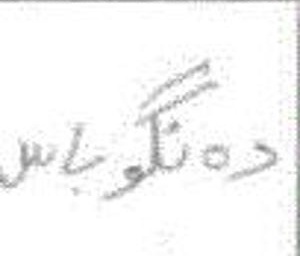 ده نگوباس